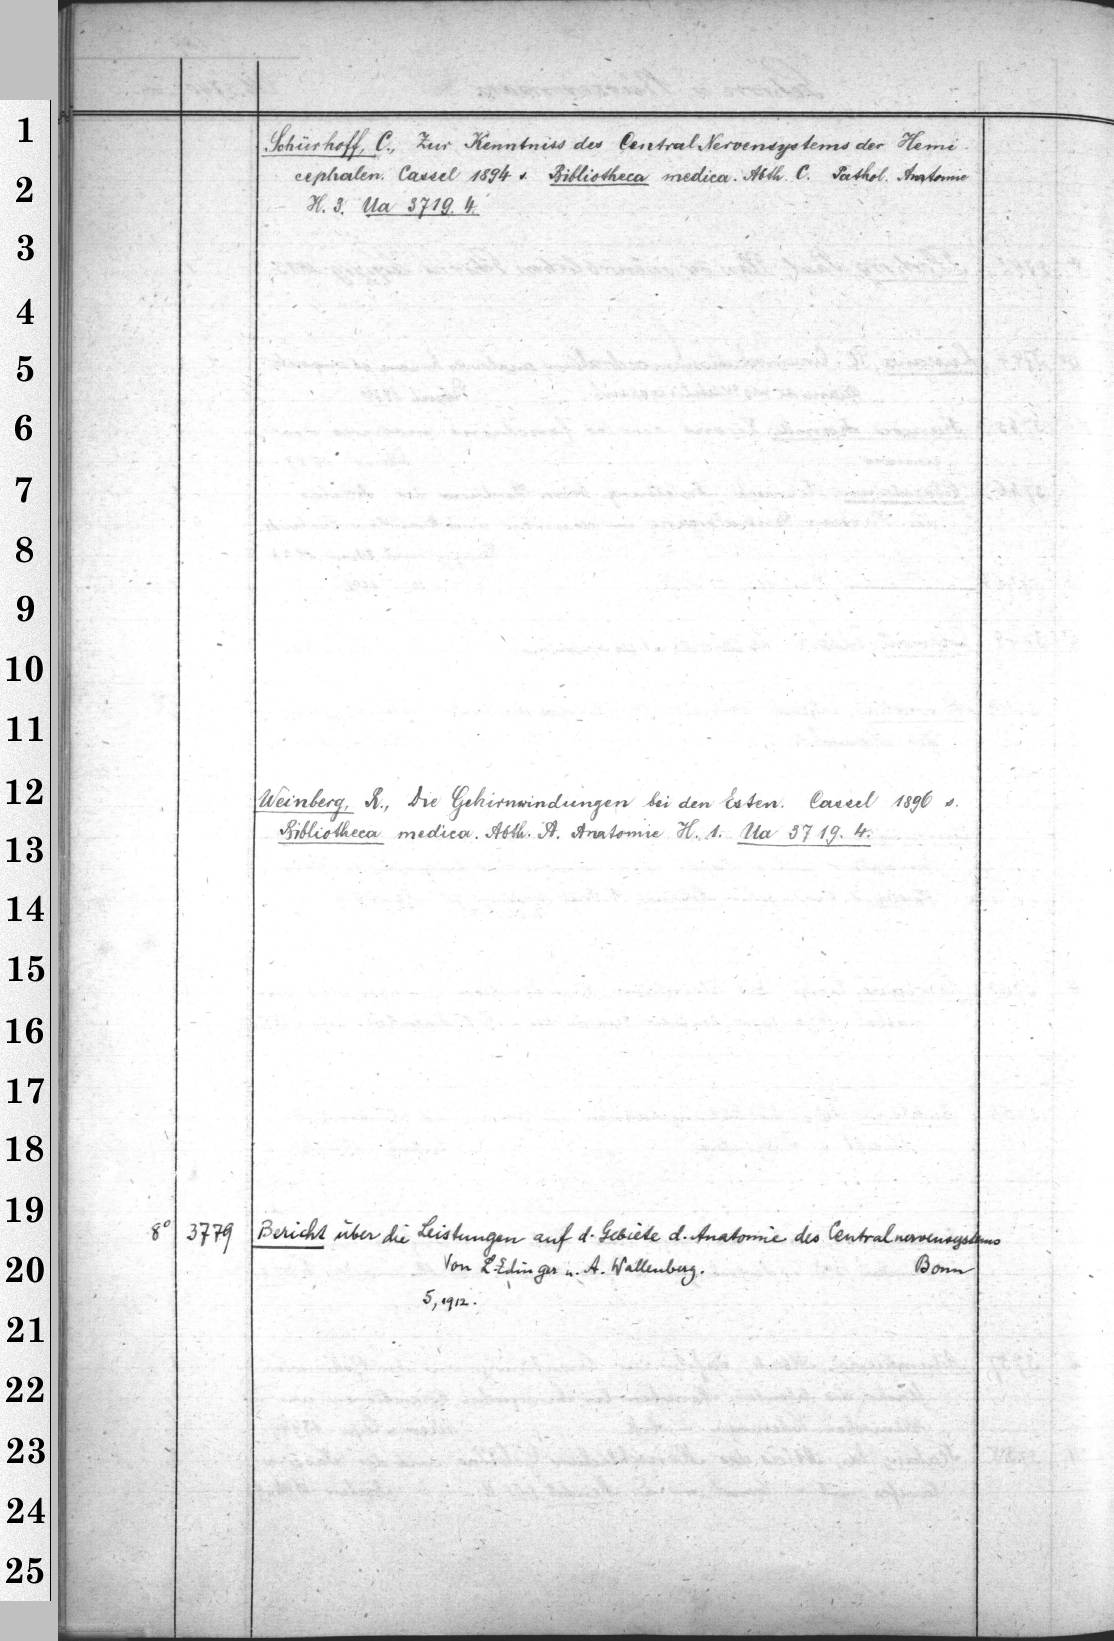 1
2
3
4
5
6
7
8
9
10
11
12
13
14
15
16
17
18
19
20
21
22
23
24
25
Schürhoff, C., Zur Kenntniss des Central Nervensystems der Hemi-
cephalen. Cassel 1894 s. Bibliotheca medica. Abth. C. Pathol. Anatomie
H. 3. Ua 3719. 4.
Weinberg, R., Die Gehirnwindungen bei den Esten. Cassel 1896 s.
Bibliotheca medica. Abth. A. Anatomie H. 1. Ua 3719. 4.
8° 3779 Bericht über die Leistungen auf d. Gebiete d. Anatomie des Centralnervensystems
Von L. Edinger u. A. Wallenberg. Bonn
5, 1912.